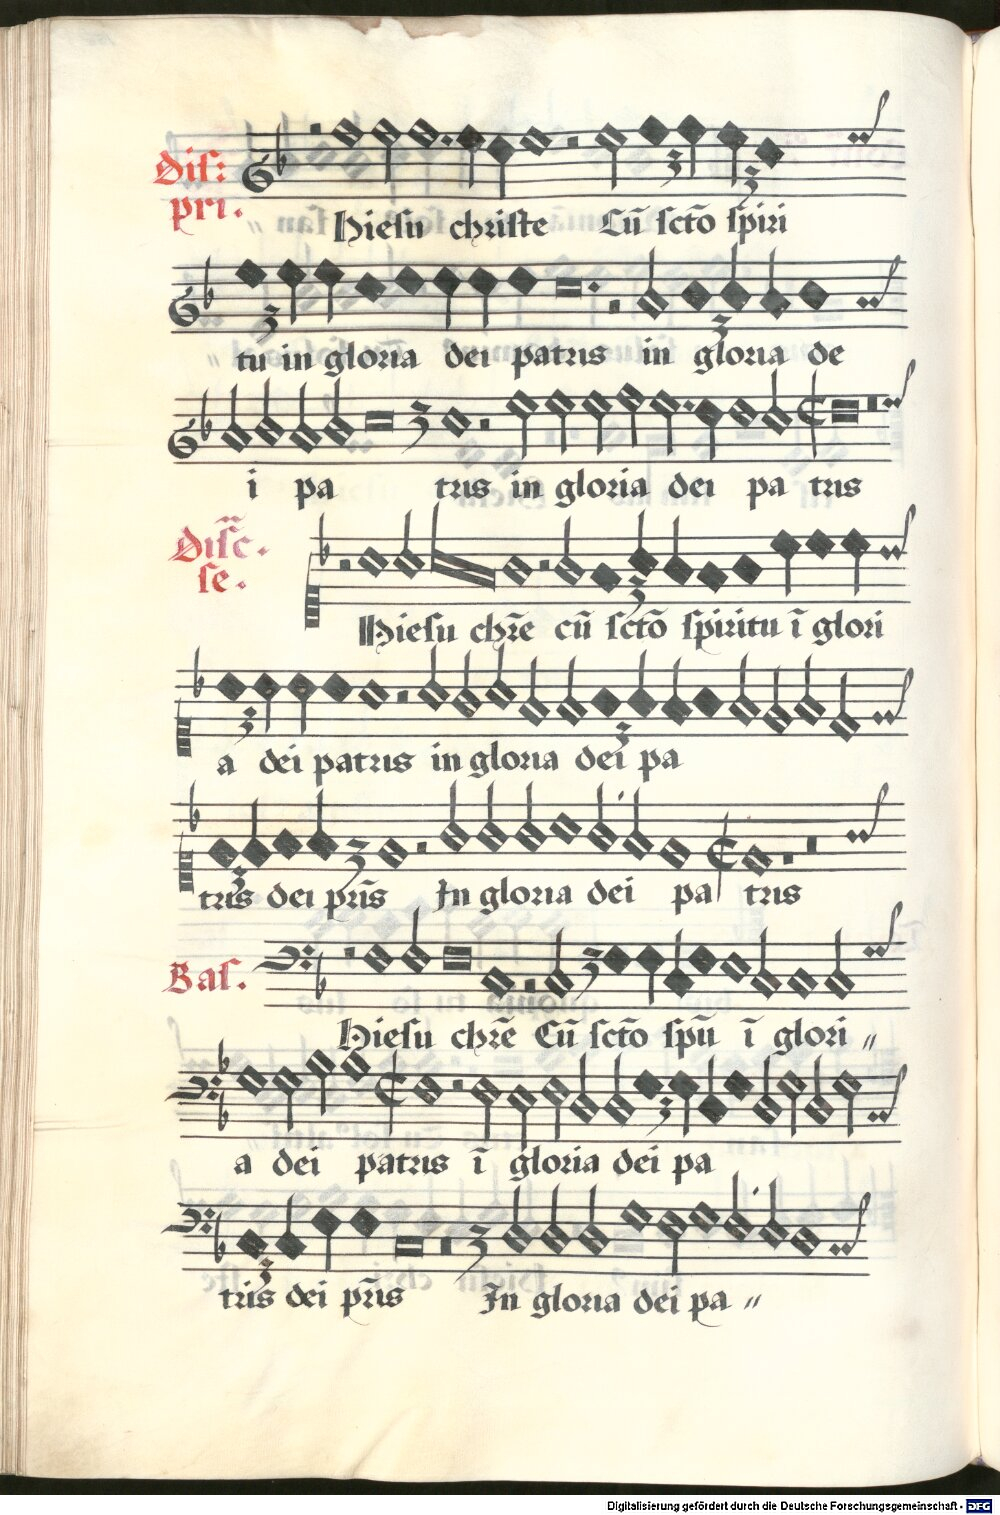 Dis:
pri.
Hiesu christe Cũ scto᷑ spiri
tu in gloria dei patris in gloria de
i pa tris in gloria dei pa tris
Disc̃.
se.
Hiesu chr̃e cũ sctõ spiritu ĩ glori
a dei patris in gloria dei pa
tris dei pr̃is In gloria dei pa tris
Bas.
Hiesu chr̃e Cũ sctõ spũ ĩ glori "
a dei patris ĩ gloria dei pa
tris dei pr̃is In gloria dei pa "
Digitalisierung gefördert durch die Deutsche Forschungsgemeinschaft - DFG